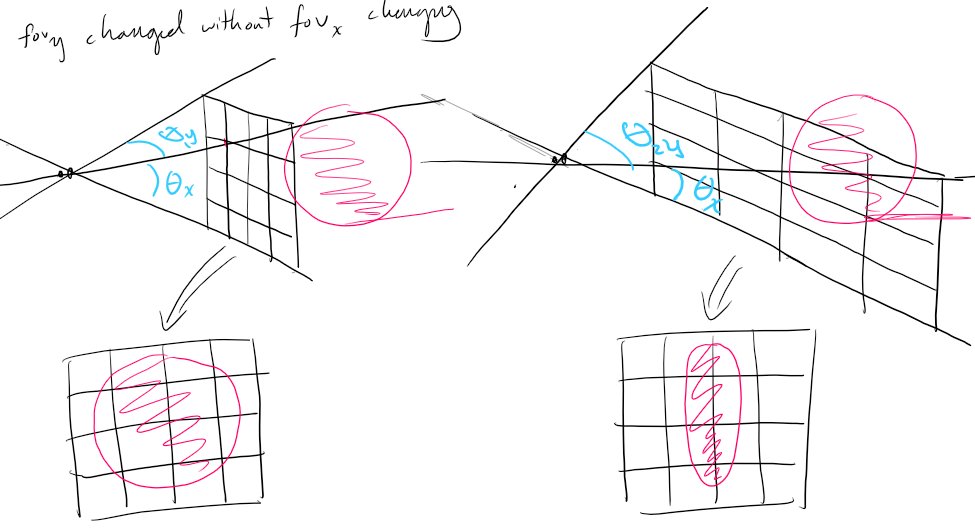 fovy changed without fovx changing
θy
θx
θ2y
θx